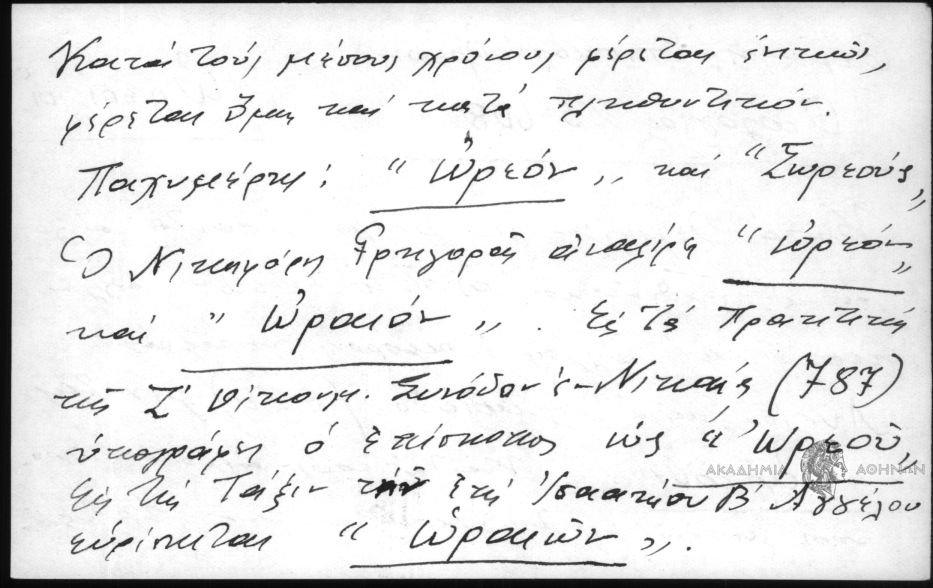 Κατά τούς μέσους χρόνους φέρεται ἑνικῶς,
φέρεται ὅμως καί κατά πληθυντικόν.
Παχυμέρης: "Ὠρεόν" καί "Σωρεούς"
Ὁ Νικηφόρος Γρηγορᾶς ἀναφέρει "Ὠρεόν"
καί "Ὠραιόν". Εἰς τά Πρακτικά
τῆς Ζ' Οἰκουμ. Συνόδου ἐν Νικαίᾳ (787)
ὑπογράφει ὁ ἐπίσκοπος ὡς "Ὠρεοῦ"
Εἰς τήν Τάξιν ἐπί Ἰσαακίου Β' Ἀγγέλου
εὑρίσκεται "Ὠραιῶν".
ΑΚΑΔΗΜΙΑ ΑΘΗΝΩΝ